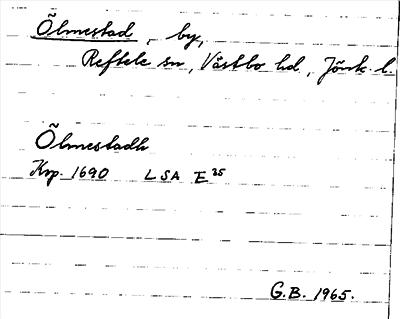 Ölmestad, by,
Reftele sn, Västbo hd., Jönk. l.
Ölmestadh
Krp. 1690 LSA E 25
G.B. 1965.